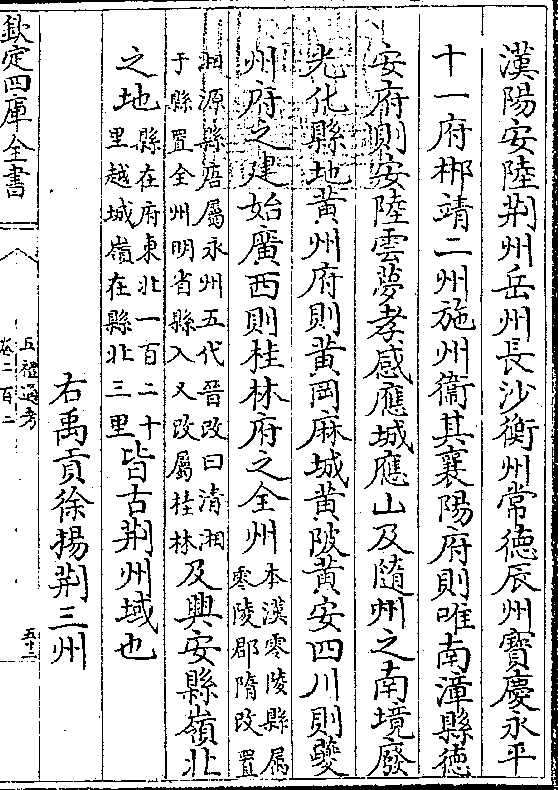 漢陽安陸荆州岳州長沙衡州常德辰州寶慶永平
十一府郴靖二州施州衞其襄陽府則唯南漳縣德
安府則安陸雲夢孝感應城應山及隨州之南境廢
光化縣地黄州府則黄岡麻城黄陂黄安四川則夔
州府之建始廣西則桂林府之全州本漢零陵縣屬零陵郡隋改置
湘源縣唐屬永州五代晉改曰清湘于縣置全州明省縣入又改屬桂林及興安縣嶺北
之地縣在府東北一百二十里越城嶺在縣北三里皆古荆州域也
右禹貢徐揚荆三州
欽定四庫全書
五禮通考
卷二百二
五十二